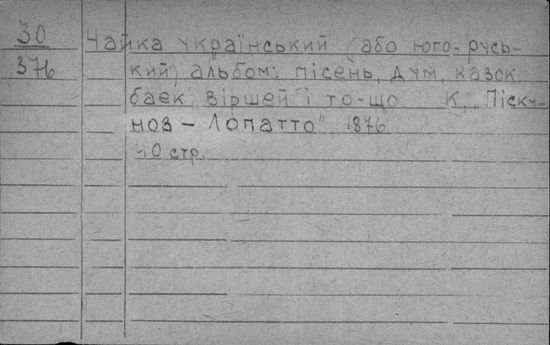 30
376
Чайка український (або юго-русь-
кий) альбом: пісень, дум, казок,
баек, віршей і то-що К, „Піску-
нов – Лопатто" 1876
40 стр.